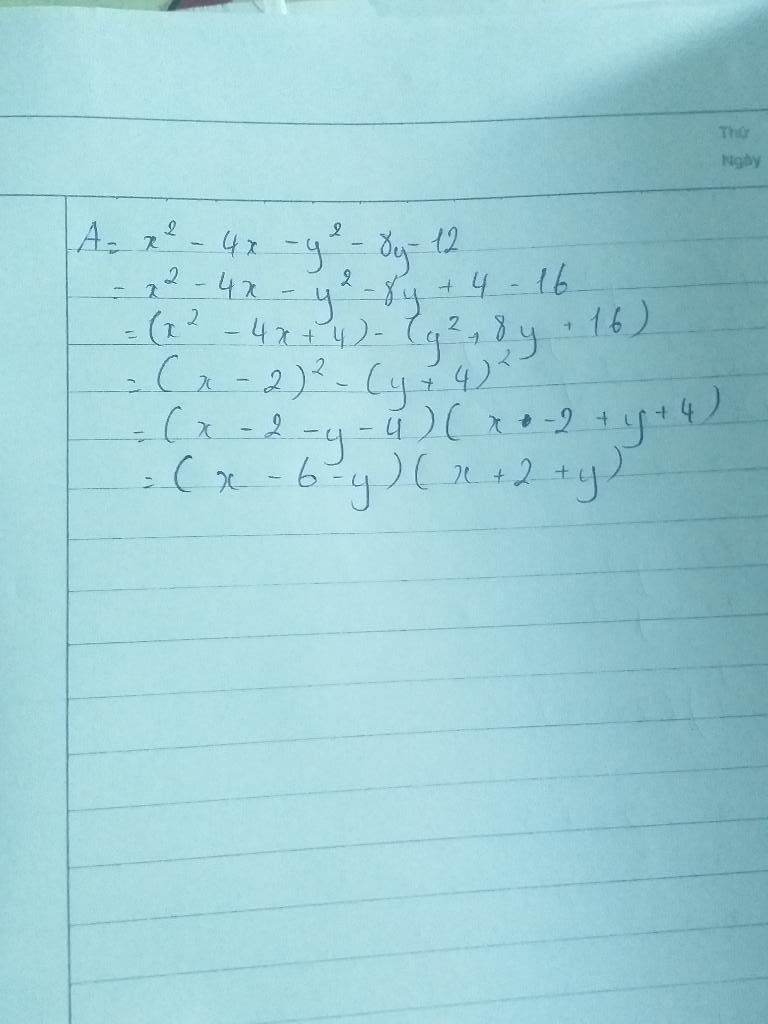 Thứ
Ngày
A = x² - 4x - y² - 8y - 12
= x² - 4x - y² - 8y + 4 - 16
= (x² - 4x + 4) - (y² + 8y + 16)
= (x - 2)² - (y + 4)²
= (x - 2 - y - 4)(x - 2 + y + 4)
= (x - 6 - y)(x + 2 + y)